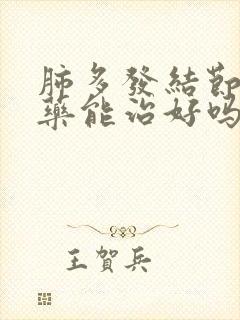 肺多發結節
藥能治好嗎
王賀兵